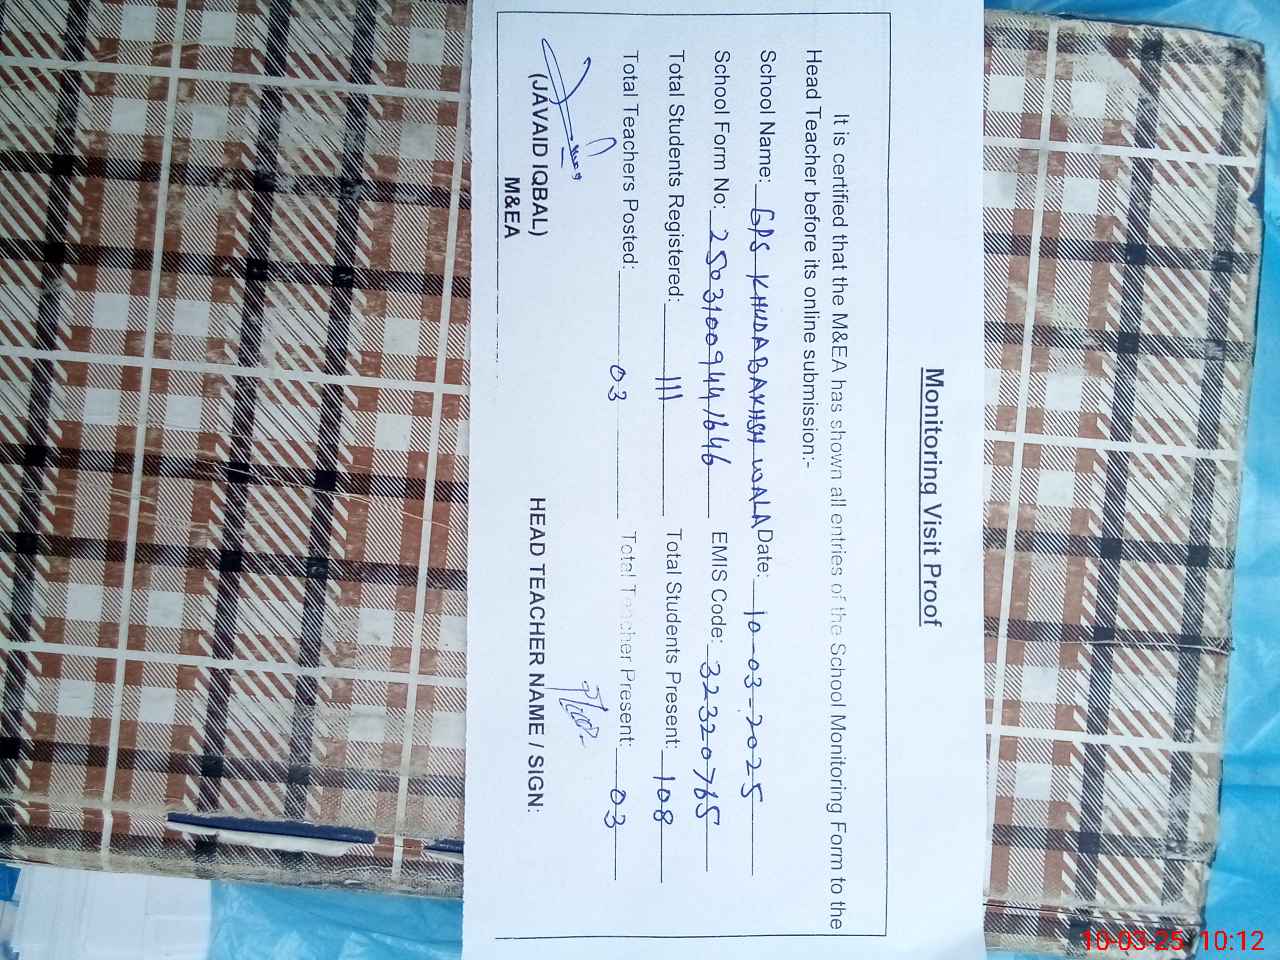 Monitoring Visit Proof
It is certified that the M&EA has shown all entries of the School Monitoring Form to the
Head Teacher before its online submission:-
School Name: GPS KHUDABAKHSH WALA Date: 10-03-2025
School Form No: 25031009441646 EMIS Code: 32320765
Total Students Registered: 111 Total Students Present: 108
Total Teachers Posted: 03 Total Teacher Present: 03
(JAVAID IQBAL)
M&EA
HEAD TEACHER NAME / SIGN:
10-03-25 10:12